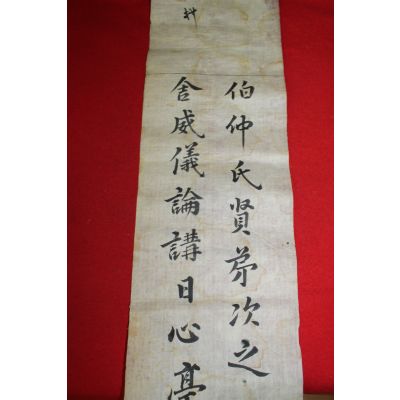 伯仲氏賢苐次之
舍威儀論講日心亭